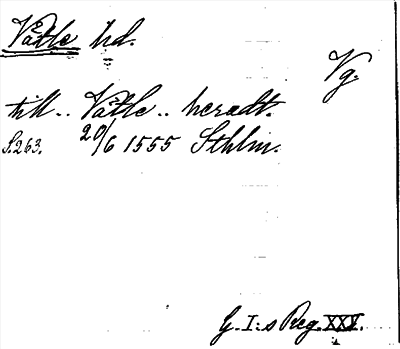 Våtle hd.
Vg.
till.. Våtle.. heradt.
S.263. 20/6 1555 Sthlm.
G. I:s Reg. XXV.